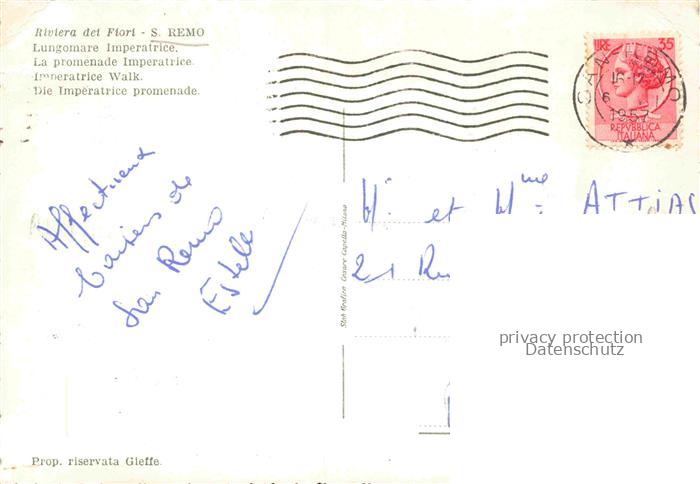 Riviera dei Fiori - S. REMO
Lungomare Imperatrice.
La promenade Imperatrice.
Imperatrice Walk.
Die Imperatrice promenade.
LIRE 35
SAN REMO
16-17
6
1957
REPVBBLICA
ITALIANA
Affectueux
baisers de
San Remo
Estelle
Mr et Mme ATTIAS
21 Ru
Stab Grafico Cesare Capello-Milano
privacy protection
Datenschutz
Prop. riservata Gieffe.